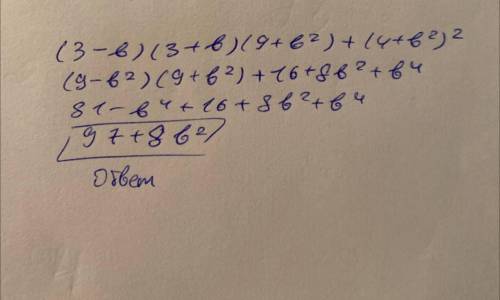 (3-в)(3+в)(9+в²)+(4+в²)²
(9-в²)(9+в²)+16+8в²+в⁴
81-в⁴+16+8в²+в⁴
97+8в²
Ответ